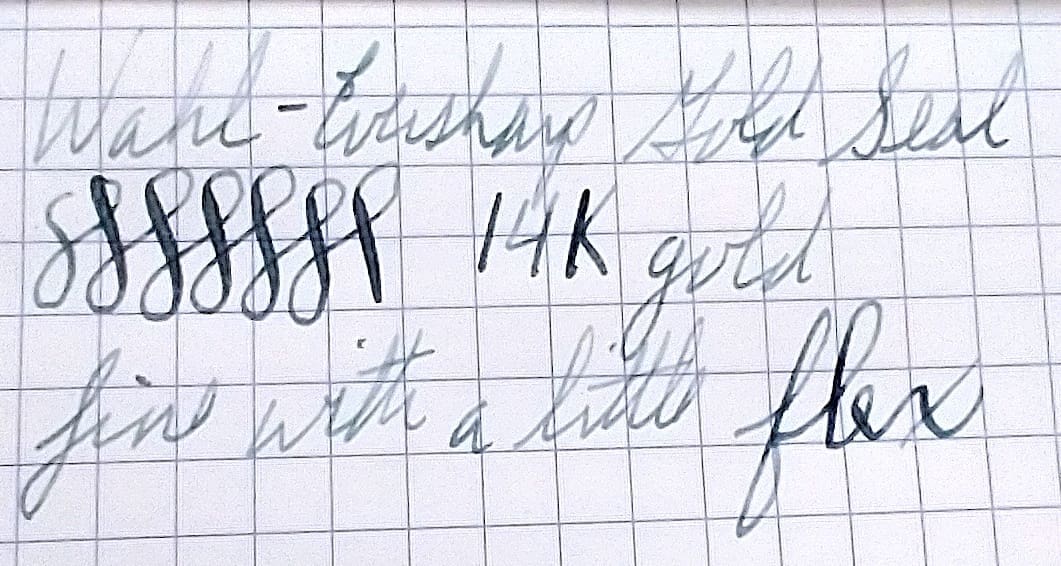 Wahl-Eversharp Gold Seal
14K gold
fine with a little flex